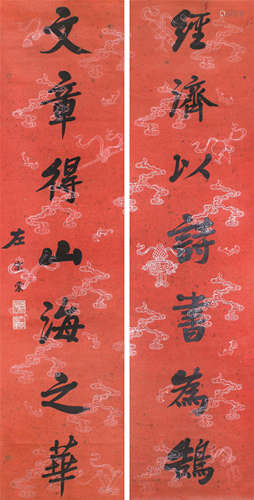 經濟以詩書為鵠
文章得山海之華
左宗棠